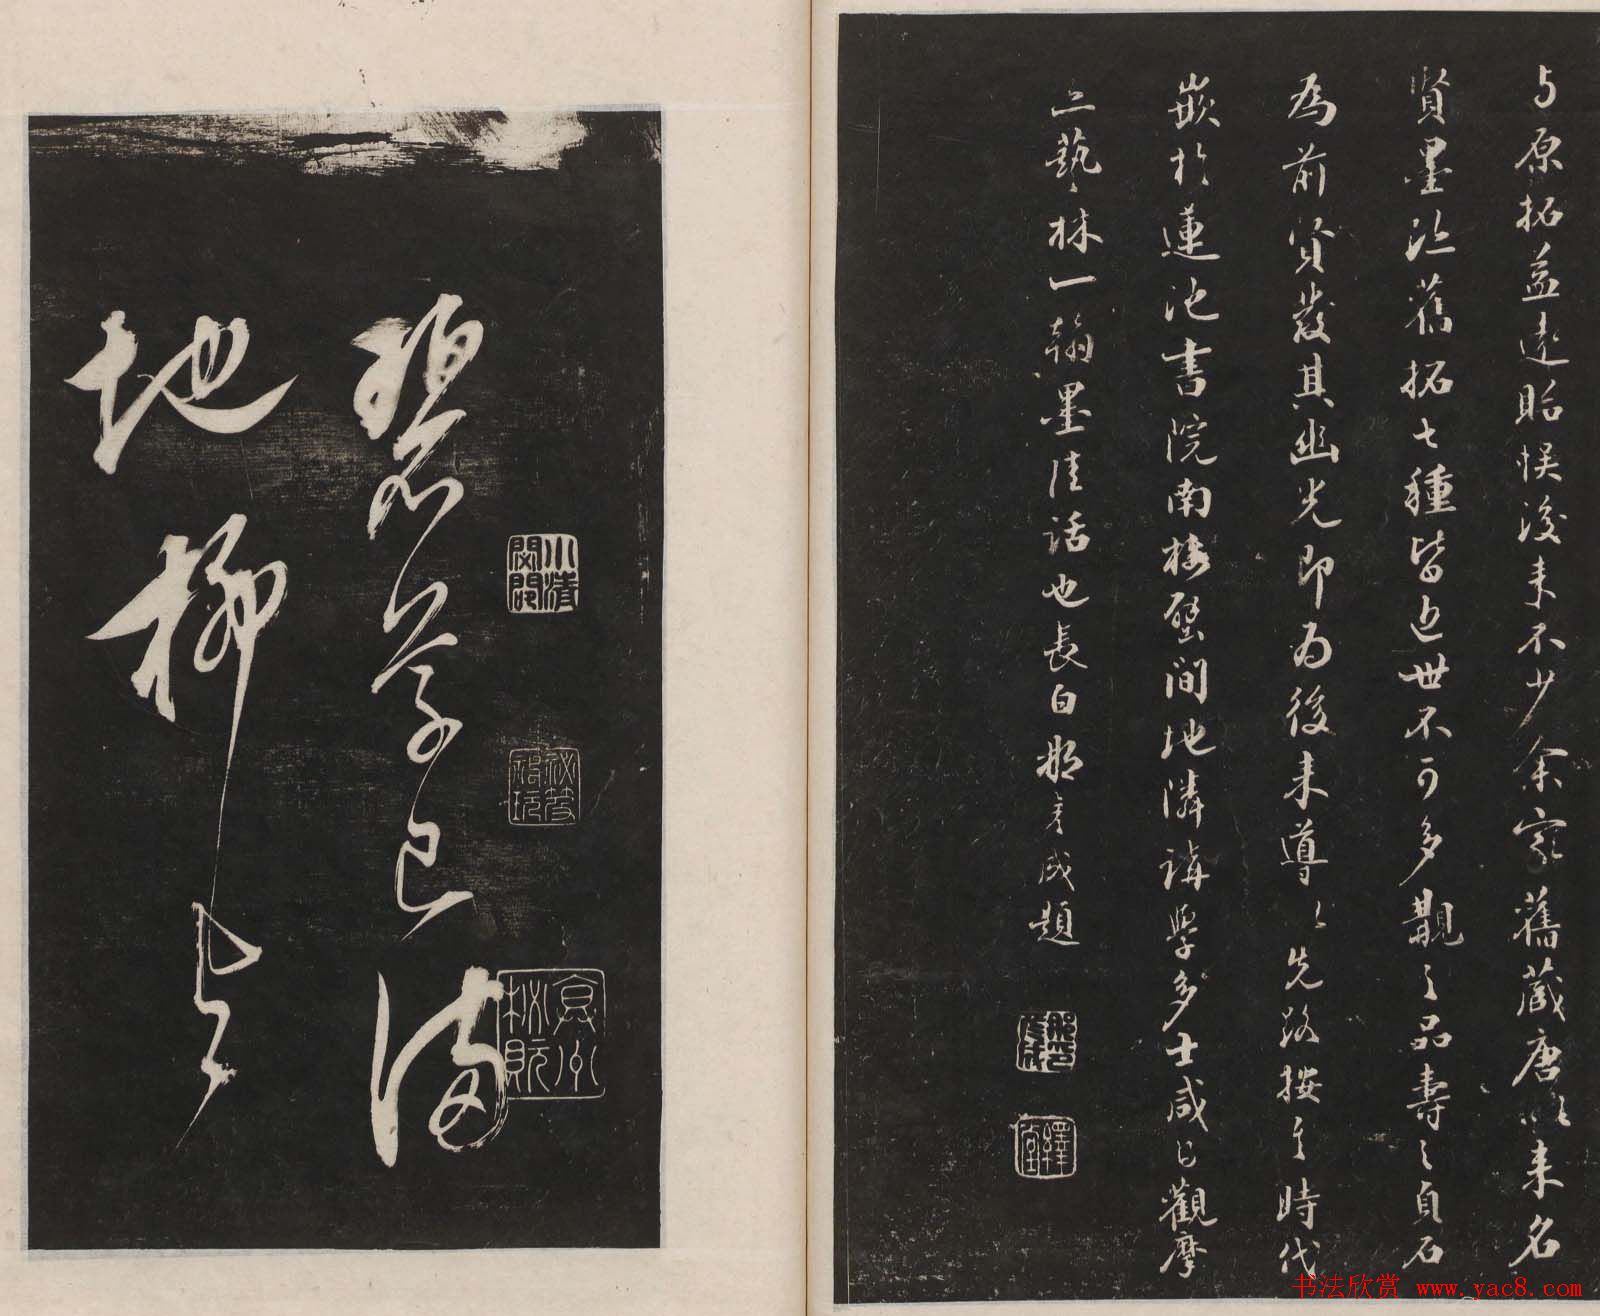 与原拓益遠貽悞後来不少余家舊藏唐以来名
賢墨迹舊拓七種皆近世不可多覯之品壽之貞石
為前賢發其幽光即為後来導之先路按之時代
嵌於蓮池書院南樓壁間地隣講學多士咸已觀摩
亦藝林一翰墨佳話也長白那彥成題
那彥成
繹堂
碧草已滿
地柳與
小清閟閣
祕笈
林阮
書法欣賞 www.yac8.com